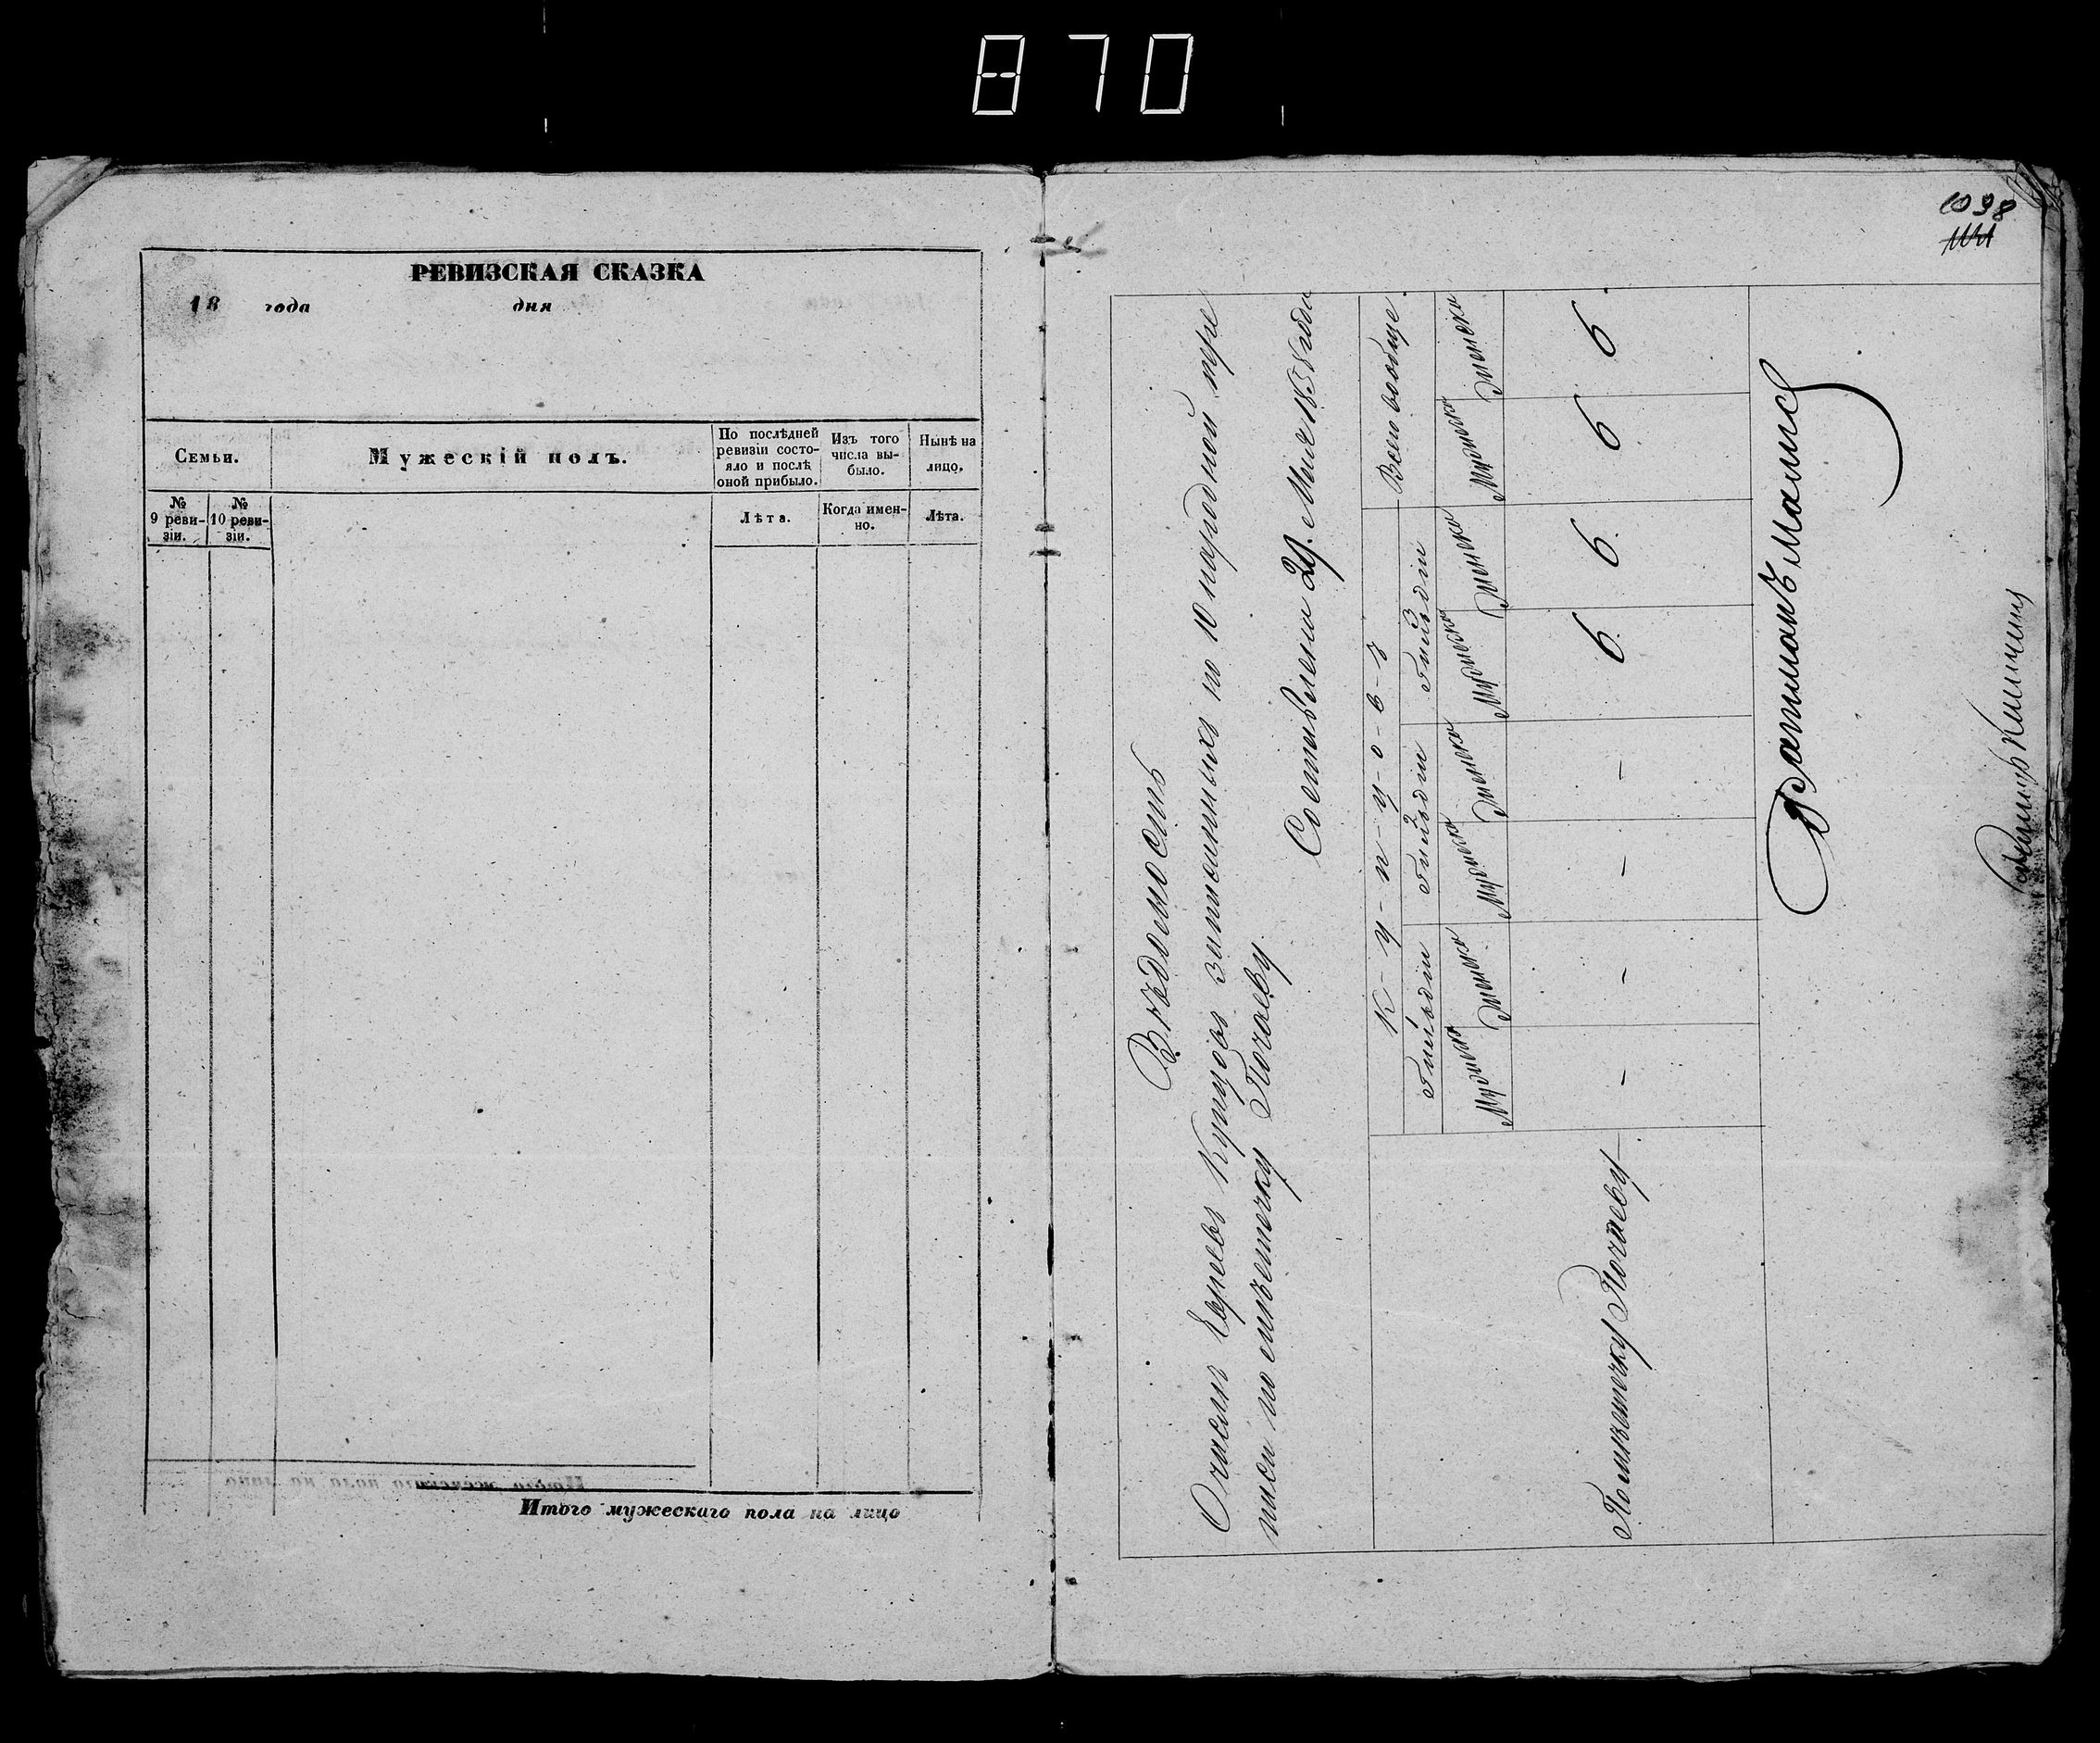 870
РЕВИЗСКАЯ СКАЗКА
18 года дня
Семьи.
Мужескій полъ.
По послѣдней ревизіи состо-
яло и послѣ
оной прибыло.
Изъ того
числа вы-
было.
Нынѣ на
лицо.
№
9 реви-
зіи.
№
10 реви-
зіи.
Лѣта.
Когда имен-
но.
Лѣта.
Итого мужескаго пола на лицо
1098
Вѣдомость
О числѣ Евреевъ Купцовъ записанныхъ по 10 народной пере
писи по мѣстечку Почаеву
Составлена 29. Мая 1858 года
К-у-п-ц-о-в-ъ
Всего вообще
1 Гильдіи
2 Гильдіи
3 Гильдіи
Мужеска Женска Мужеска Женска Мужеска Женска Мужеска Женска
По мѣстечку Почаеву – – – – 6. 6. 6 6.
Ратманъ